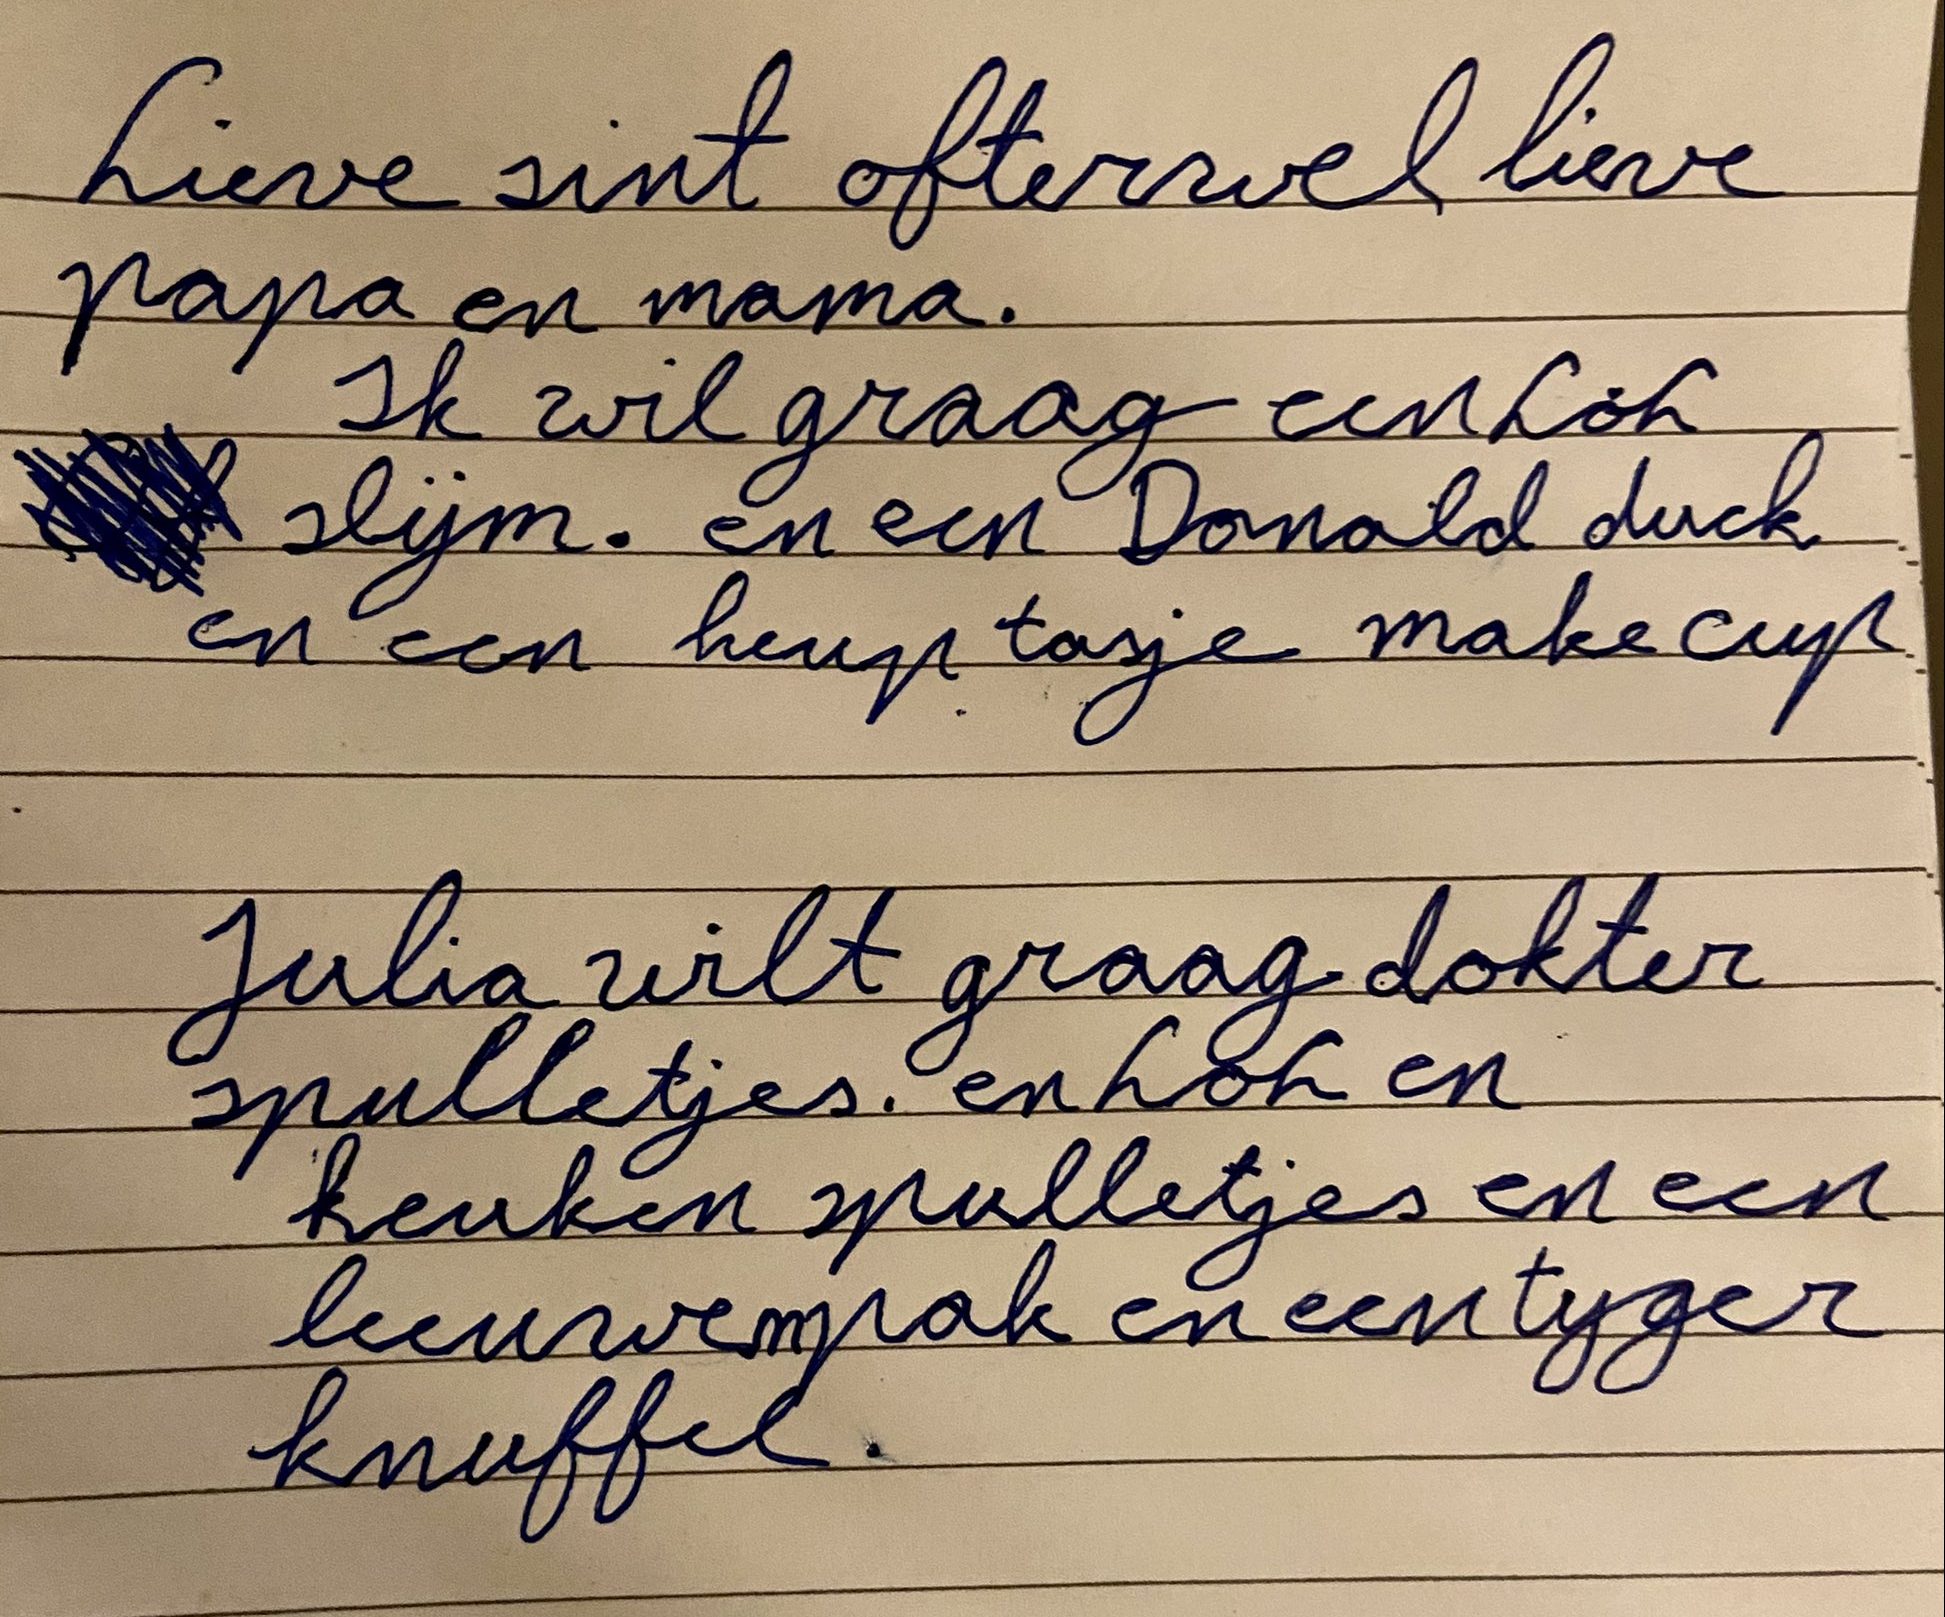 Lieve sint ofterwel lieve
papa en mama.
Ik wil graag een LoL
slijm. en een Donald duck
en een heup tasje make cup
Julia wilt graag dokter
spulletjes. en LoL en
keuken spulletjes en een
leeuwenpak en een tyger
knuffel.